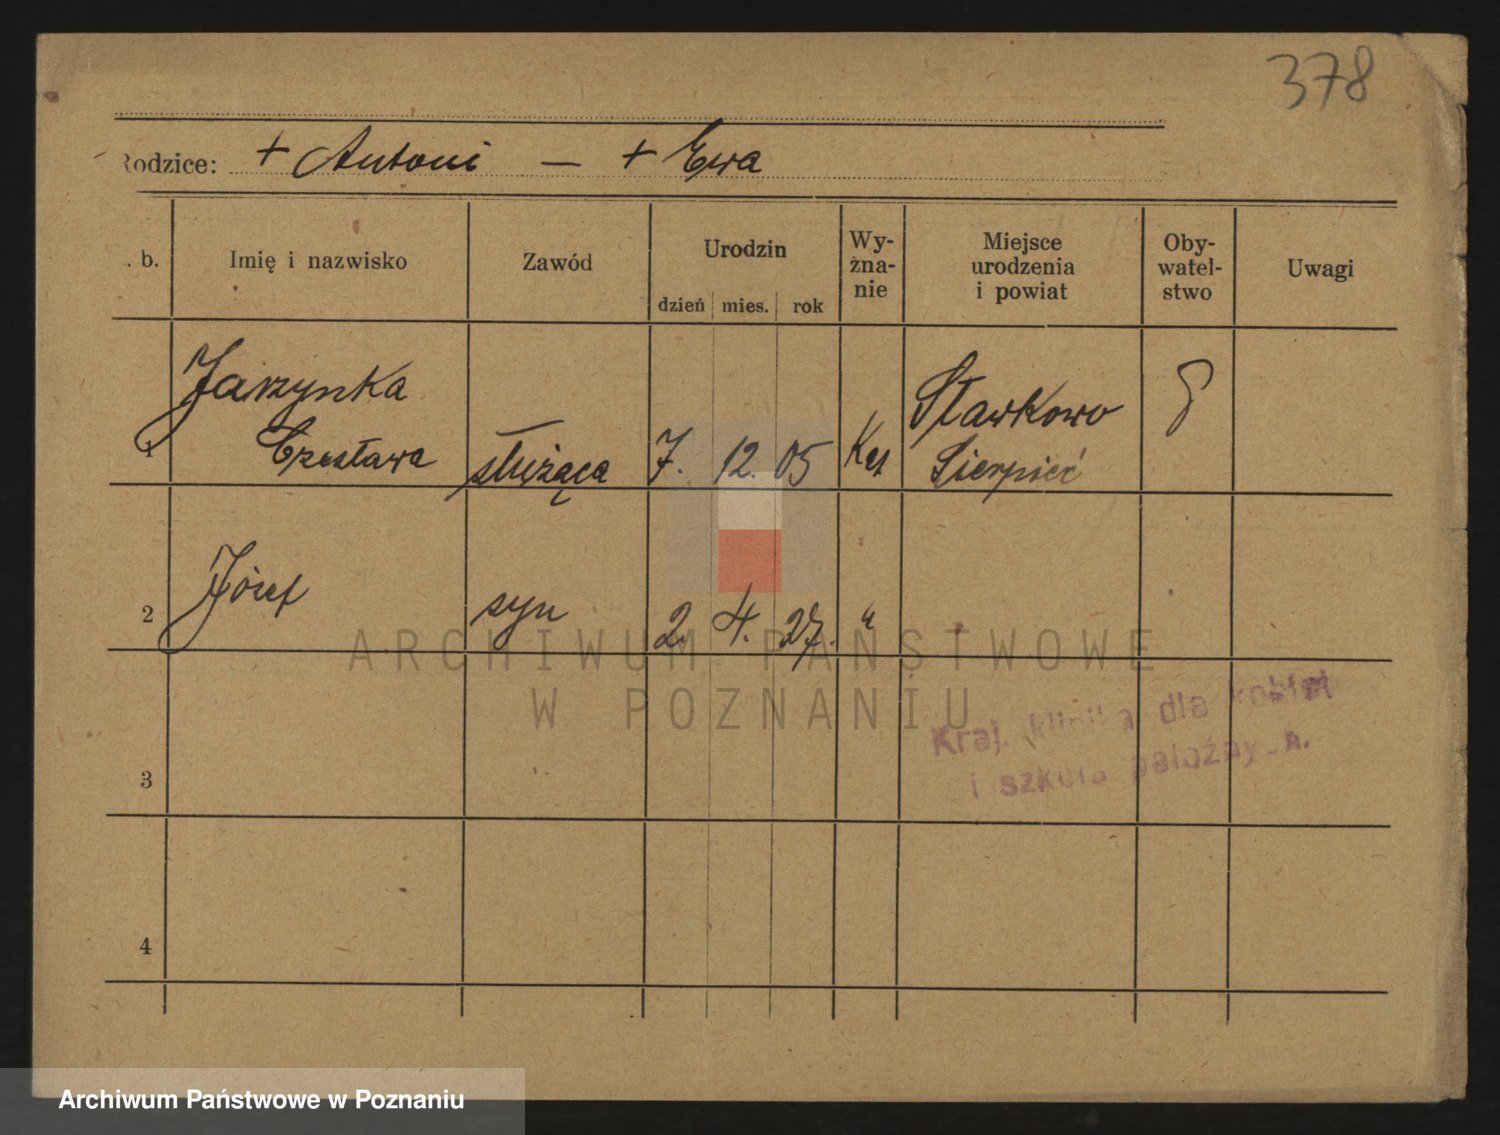 378
Rodzice: + Antoni — + Ewa
. b.
Imię i nazwisko
Zawód
Urodzin
dzień mies. rok
Wy-
zna-
nie
Miejsce
urodzenia
i powiat
Oby-
watel-
stwo
Uwagi
1 Jarzynka
Czesława służąca 7. 12. 05 Kat
Sławkowo
Sierpień
2 Józef syn 2. 4. 27. "
3
4
Kraj. klinika dla kobiet
i szkoła położnych.
ARCHIWUM PAŃSTWOWE
W POZNANIU
Archiwum Państwowe w Poznaniu